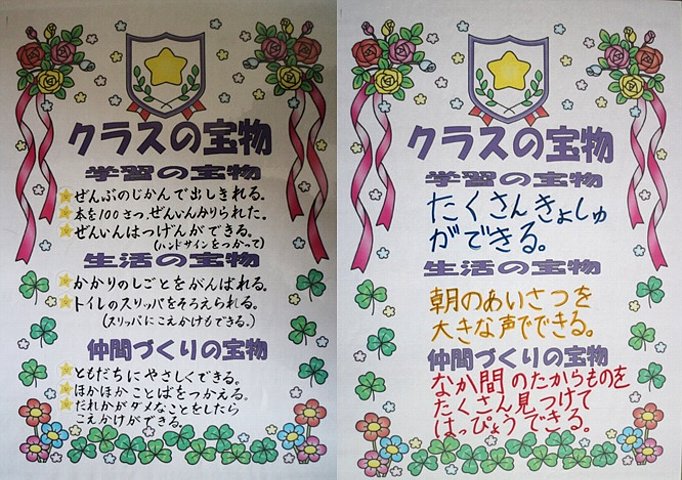 クラスの宝物
学習の宝物
ぜんぶのじかんで出しきれる。
本を100さつ、ぜんいんかりられた。
ぜんいんはつげんができる。
(ハンドサインをつかって)
生活の宝物
かかりのしごとをがんばれる。
トイレのスリッパをそろえられる。
(スリッパにこえかけもできる。)
仲間づくりの宝物
ともだちにやさしくできる。
ほかほかことばをつかえる。
だれかがダメなことをしたら
こえかけができる。
クラスの宝物
学習の宝物
たくさんきょしゅ
ができる。
生活の宝物
朝のあいさつを
大きな声でできる。
仲間づくりの宝物
なか間のたからものを
たくさん見つけて
はっぴょうできる。